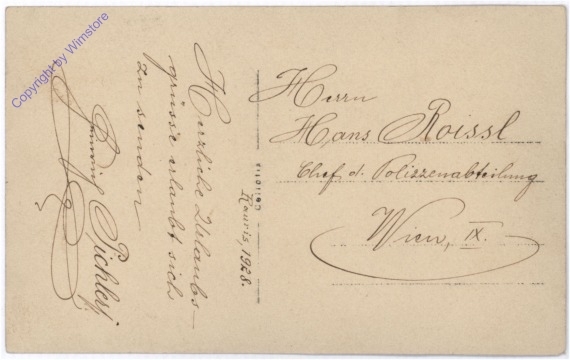 Herzliche Urlaubs-
grüsse erlaubt sich
zu senden
Pichler
Rauris, 1928.
Herrn
Hans Roissl
Chef d. Polizzenabteilung
Wien, IX.
Copyright by Wimstore